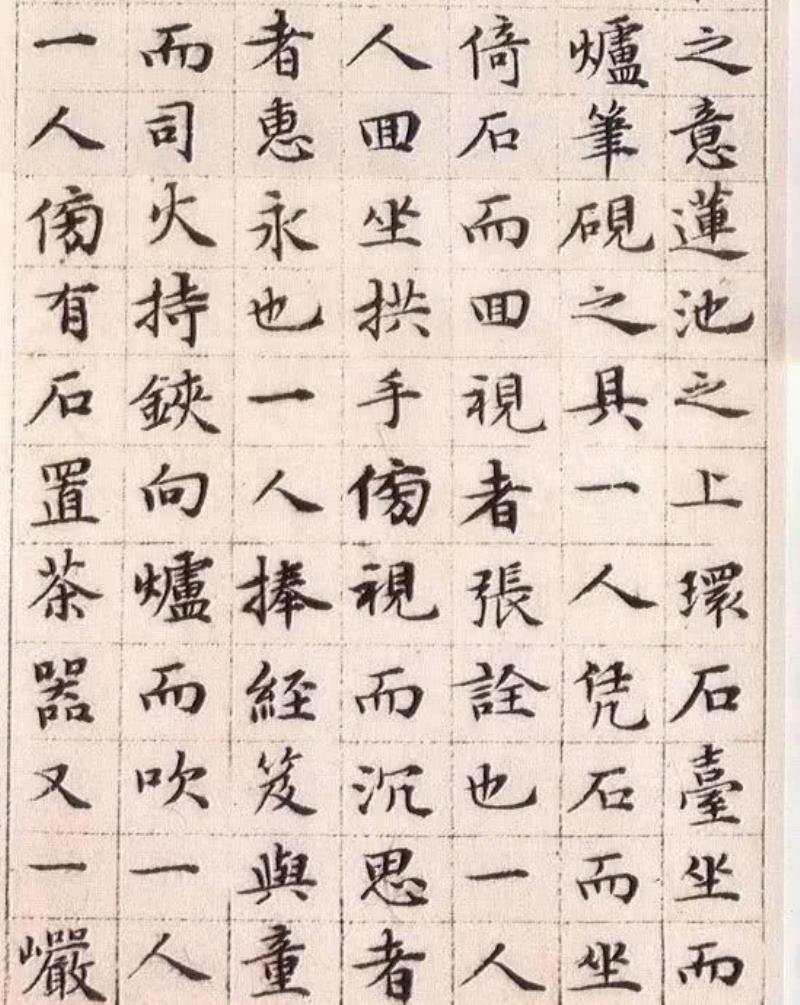 之意蓮池之上環石臺坐而
爐筆硯之具一人凭石而坐
倚石而回視者張詮也一人
人回坐拱手傍視而沉思者
者惠永也一人捧經笈與童
而司火持鋏向爐而吹一人
一人傍有石置茶器又一巖